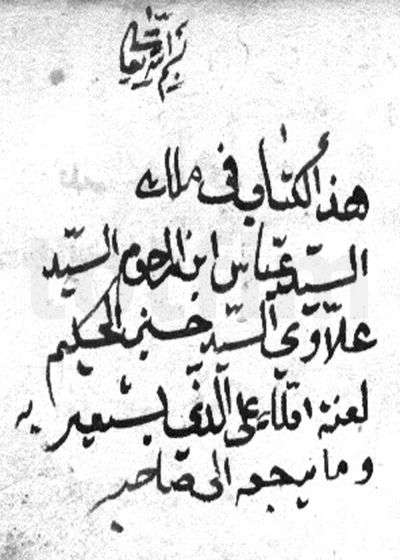 بسم الله تعالى
هذا الكتاب في ملك
السيد عباس ابن المرحوم السيد
علاوي السيد حسين الحكيم
لعنة الله على الذي يستعير به
وما يرجعه الى صاحبه